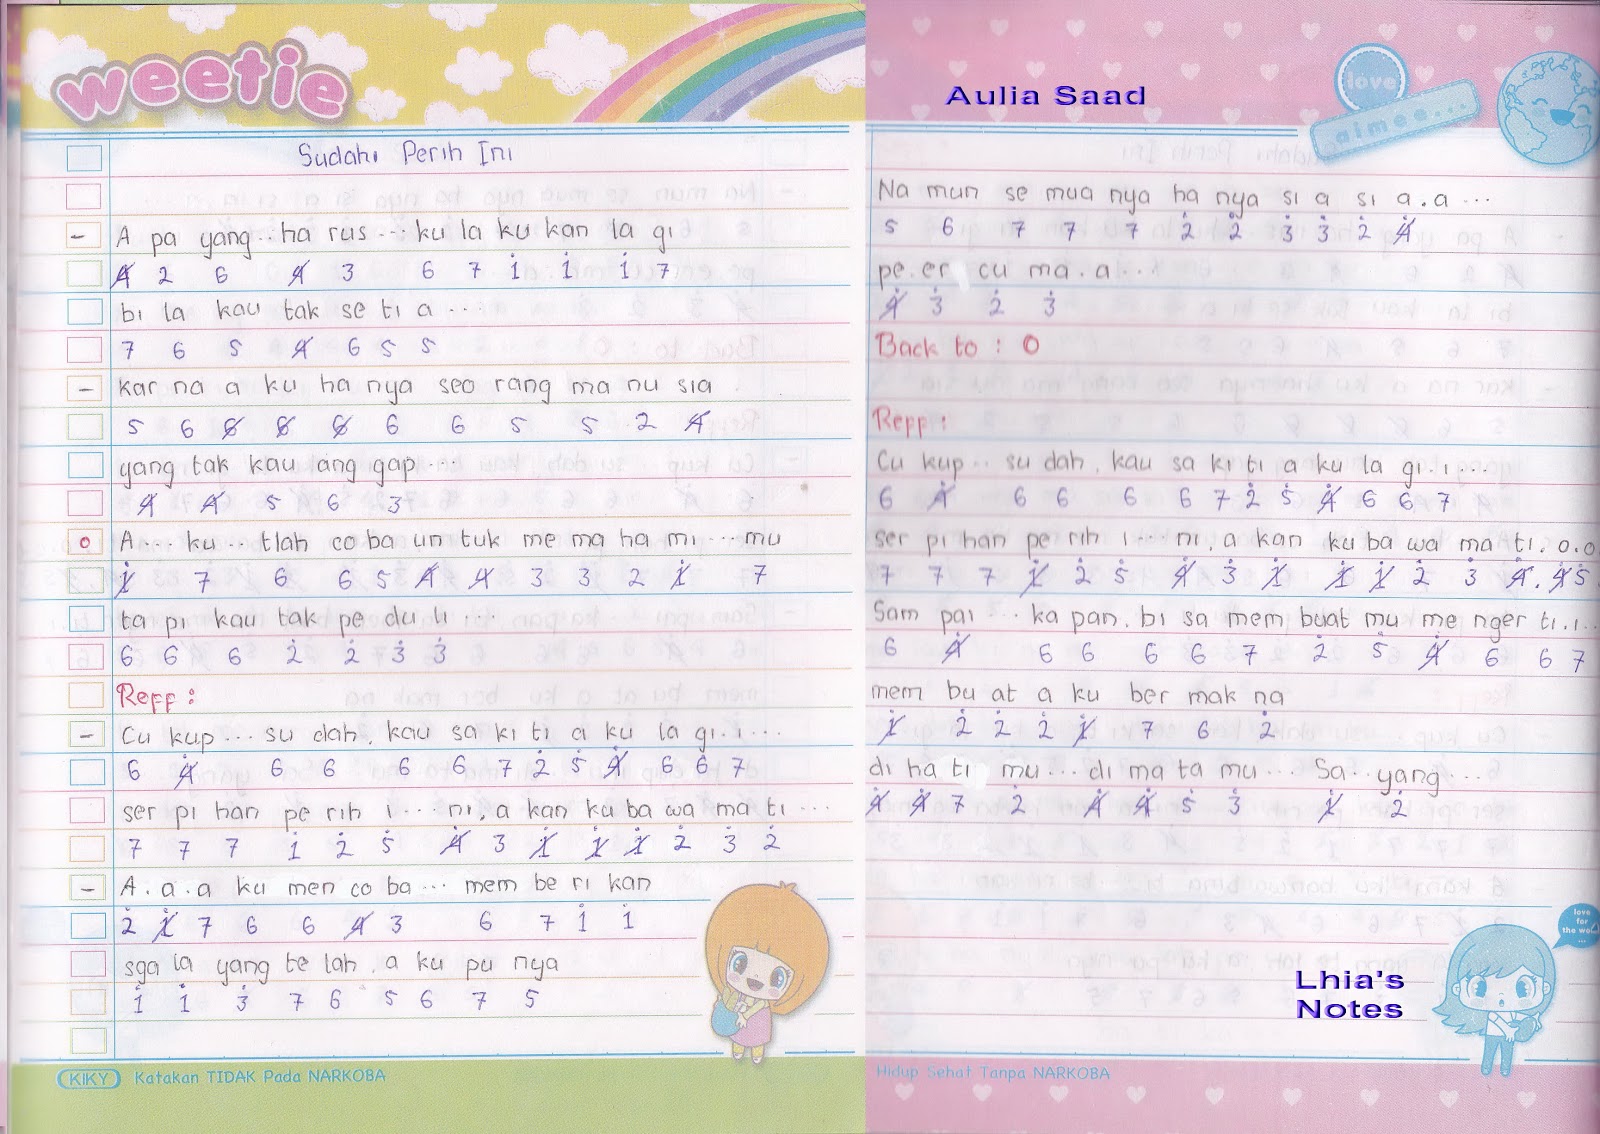 weetie
Sudahi Perih Ini
- A pa yang... ha rus... ku la ku kan la gi
4 2 6 4 3 6 7 1 1 1 7
bi la kau tak se ti a...
7 6 5 4 6 5 5
- kar na a ku ha nya seo rang ma nu sia
5 6 6 6 6 6 6 5 5 2 4
yang tak kau ang gap...
4 4 5 6 3
o A... ku... tlah co ba un tuk me ma ha mi... mu
1 7 6 6 5 4 4 3 3 2 1 7
ta pi kau tak pe du li...
6 6 6 2 2 3 3
Reff :
- Cu kup... su dah, kau sa ki ti a ku la gi. i...
6 4 6 6 6 6 7 2 5 4 6 6 7
ser pi han pe rih i... ni, a kan ku ba wa ma ti...
7 7 7 1 2 5 4 3 1 1 1 2 3 2
- A. a. a ku men co ba... mem be ri kan
2 1 7 6 6 4 3 6 7 1 1
sga la yang te lah, a ku pu nya
1 1 3 7 6 5 6 7 5
KIKY Katakan TIDAK Pada NARKOBA
Aulia Saad
love
aimee...
Na mun se mua nya ha nya si a si a. a...
5 6 7 7 7 2 2 3 3 2 4
pe. er cu ma. a...
4 3 2 3
Back to : O
Reff :
Cu kup.. su dah, kau sa ki ti a ku la gi. i...
6 4 6 6 6 6 7 2 5 4 6 6 7
ser pi han pe rih i... ni, a kan ku ba wa ma ti. o.o
7 7 7 1 2 5 4 3 1 1 1 2 3 4. 4 5
Sam pai... ka pan, bi sa mem buat mu me nger ti. i..
6 4 6 6 6 6 7 2 5 4 6 6 7
mem bu at a ku ber mak na
1 2 2 2 1 7 6 2
di ha ti mu... di ma ta mu... Sa.. yang...
4 4 7 2 4 4 5 3 1 2
love
for
the wo
Lhia's
Notes
Hidup Sehat Tanpa NARKOBA